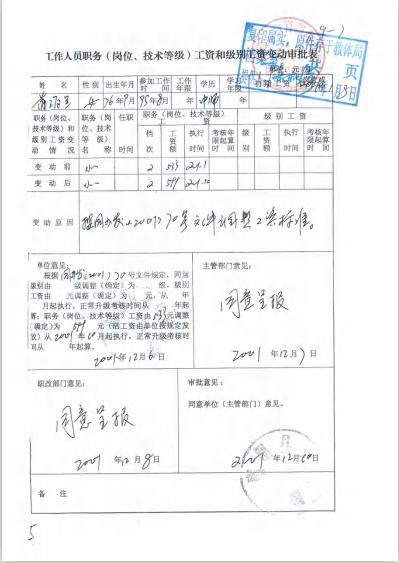 9-7
复印属实，原件存于教体局
页
工作人员职务（岗位、技术等级）工资和级别工资变动审批表
姓 名 性别 女 出生年月 76年9月 参加工作时间 95年8月 工作年限 学历 中师 学习年限
职务（岗位、技术等级）和级别工资变动情况 职务（岗位、技术等级）名称 任职时间 职务（岗位、技术等级）工资 级别工资
档次 工资额 执行时间 考核年限起算时间 级别 工资额 执行时间 考核年限起算时间
变动前 小一 2 533 2001.1
变动后 小一 2 599 2001.10
变动原因 2001）70号文件调整工资标准。
单位意见：
根据 （2001）70号文件规定，同意
级别由 级调整（确定）为 级，级别
工资由 元调整（确定）为 元，从 年
月起执行，正常升级考核时间从 年起
算；职务（岗位、技术等级）工资由533元调整
（确定）为 599 元（活工资由单位按规定发
放）从2001年10月起执行。正常升级考核时
间从 年起算。
2001年12月6日
主管部门意见：
同意呈报
2001年12月7日
职改部门意见：
同意呈报
2001年12月8日
审批意见：
同意单位（主管部门）意见。
2001年12月10日
备 注
5